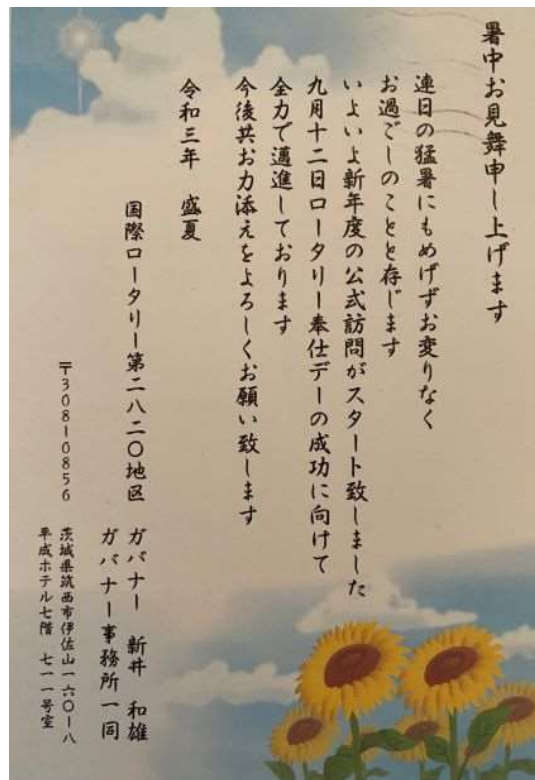 暑中お見舞申し上げます
連日の猛暑にもめげずお変りなく
お過ごしのことと存じます
いよいよ新年度の公式訪問がスタート致しました
九月十二日ロータリー奉仕デーの成功に向けて
全力で邁進しております
今後共お力添えをよろしくお願い致します
令和三年 盛夏
国際ロータリー第二八二〇地区
ガバナー 新井 和雄
ガバナー事務所一同
〒308-0856
茨城県筑西市伊佐山一六〇-八
平成ホテル七階 七一一号室